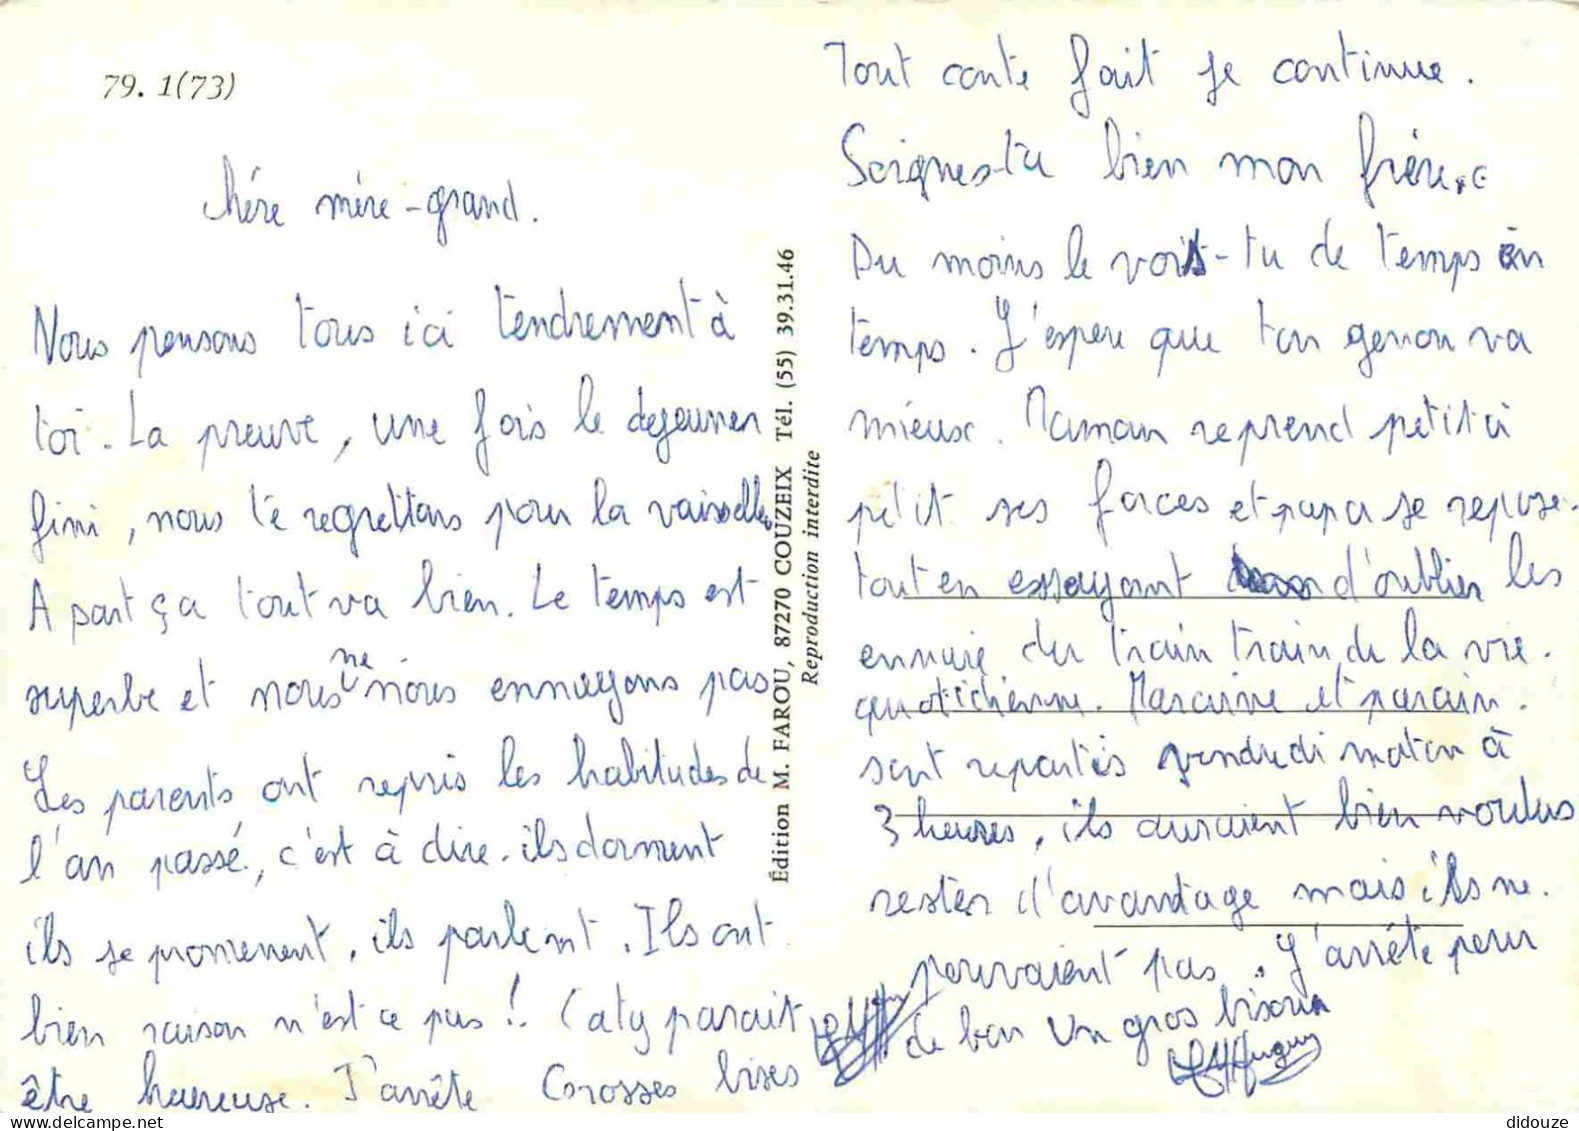 79. 1(73)
Chére mére-grand.
Nous pensons tous ici tendrement à
toi. La preuve, une fois le dejeuner
fini, nous te regrettons pour la vaisselle.
A part ça tout va bien. Le temps est
superbe et nous ne nous ennuyons pas
Les parents ont repris les habitudes de
l'an passé, c'est à dire. ils dorment
ils se promenent, ils parlent. Ils ont
bien raison n'est ce pas ! Caty parait
être heureuse. J'arrête Grosses bises
Édition M. FAROU, 87270 COUZEIX Tél. (55) 39.31.46
Reproduction interdite
Tout conte fait je continue.
Soignes-tu bien mon frère.
Du moins le vois-tu de temps en
temps. J'espere que ton genou va
mieux. Maman reprend petit à
petit ses forces et papa se repose.
tout en essayant d'oublier les
ennuis du train train de la vie.
quotidienne. Marraine et parain.
sont repartis vendredi matin à
3 heures, ils auraient bien voulus
rester d'avantage mais ils ne.
pouvaient pas. J'arrête pour
de bon Un gros bisou
didouze